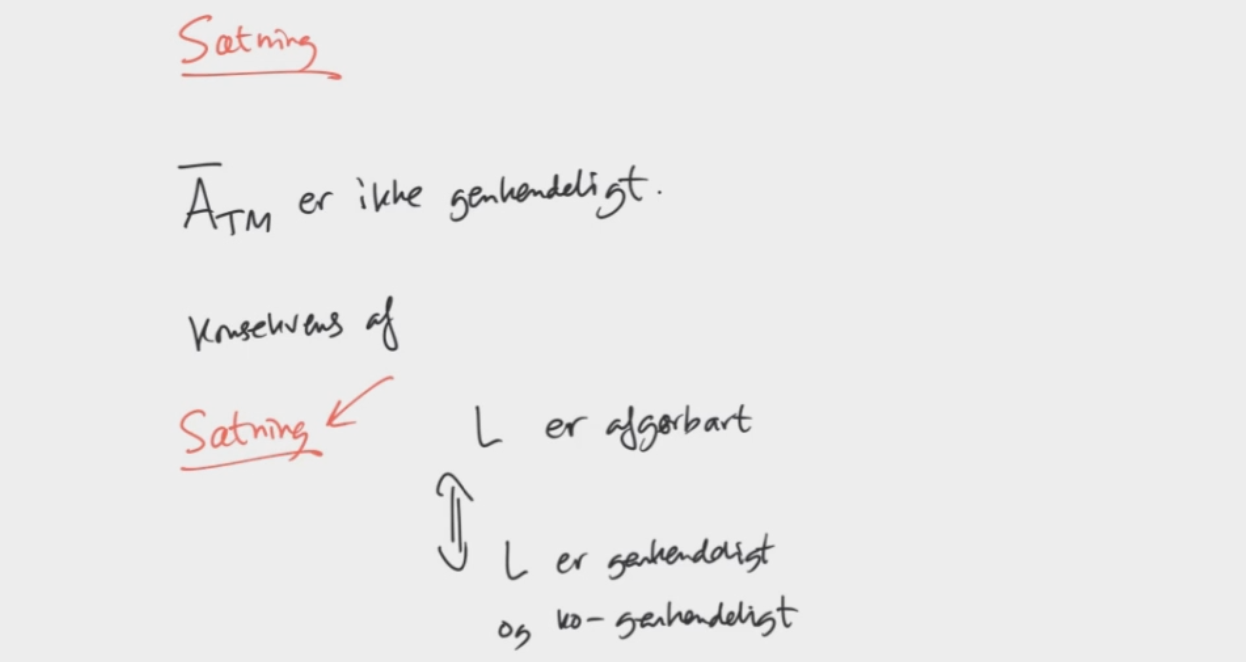 Sætning
A̅_TM er ikke genkendeligt.
Konsekvens af
Sætning
L er afgørbart
⇕
L er genkendeligt
og ko-genkendeligt